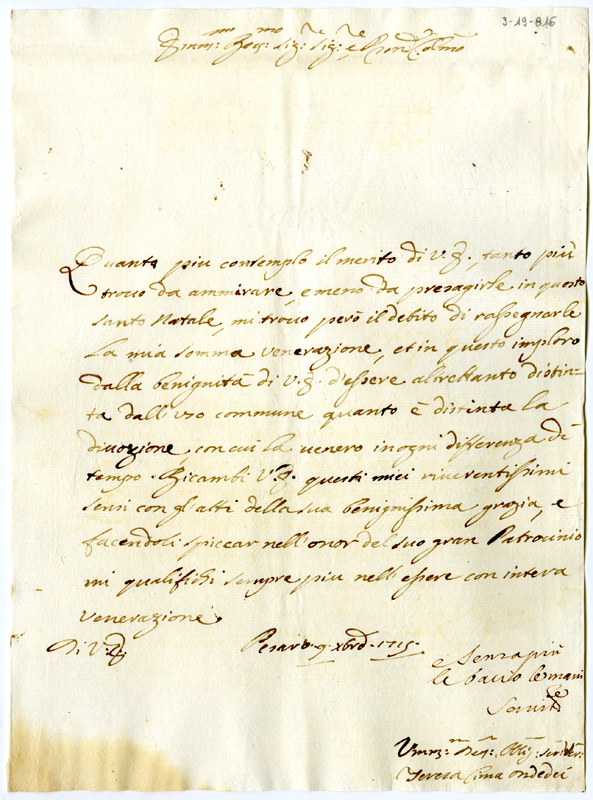 3-19-816
Emin:mo Reu:mo Sig:re Sig:re e Pron: Colmo
Quanto piu contemplo il merito di V.E., tanto più
trovo da ammirare, e meno da presagirle in questo
santo Natale, mi trovo però il debito di rassegnarle
la mia somma venerazione, et in questo imploro
dalla benignità di V.E. d'essere altrettanto distin-
ta dall'uso commune quanto è distinta la
divozione con cui la venero in ogni differenza di
tempo. Ricambi V.E. questi miei riverentissimi
sensi con gl'atti della sua benignissima grazia, e
facendoli spiccar nell'onor del suo gran Patrocinio
mi qualifichi sempre piu nell'essere con intera
venerazione.
Di V.E. Pesaro 9 Xbre 1715
e senza più
le bacio le mani
Teresa Cima Ondedei